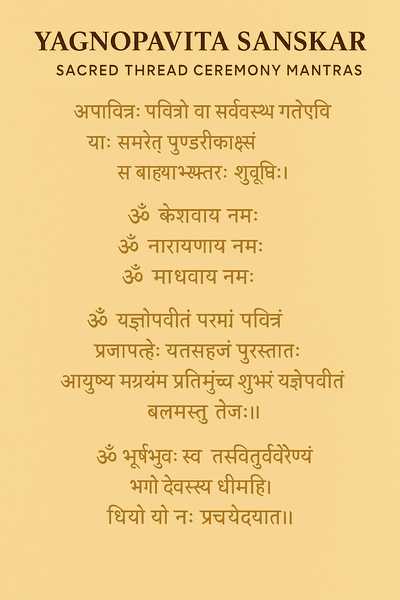 YAGNOPAVITA SANSKAR
SACRED THREAD CEREMONY MANTRAS
अपावित्रः पवित्रो वा सर्ववस्थ गतेएवि
याः समरेत् पुण्डरीकाक्सं
स बाहयाभ्यस्तरः शुवूचिः।
ॐ केशवाय नमः
ॐ नारायणाय नमः
ॐ माधवाय नमः
ॐ यज्ञोपवीतं परमां पवित्रं
प्रजापत्हेः यतसहजं पुरस्तातः
आयुष्य मग्रयंम प्रतिमुंच्च शुभ्रं यज्ञेपवीतं
बलमस्तु तेजः॥
ॐ भूर्षभुवः स्व तसवितुर्ववेरेण्यं
भगो देवस्स्य धीमहि।
धियो यो नः प्रचयेदयात॥